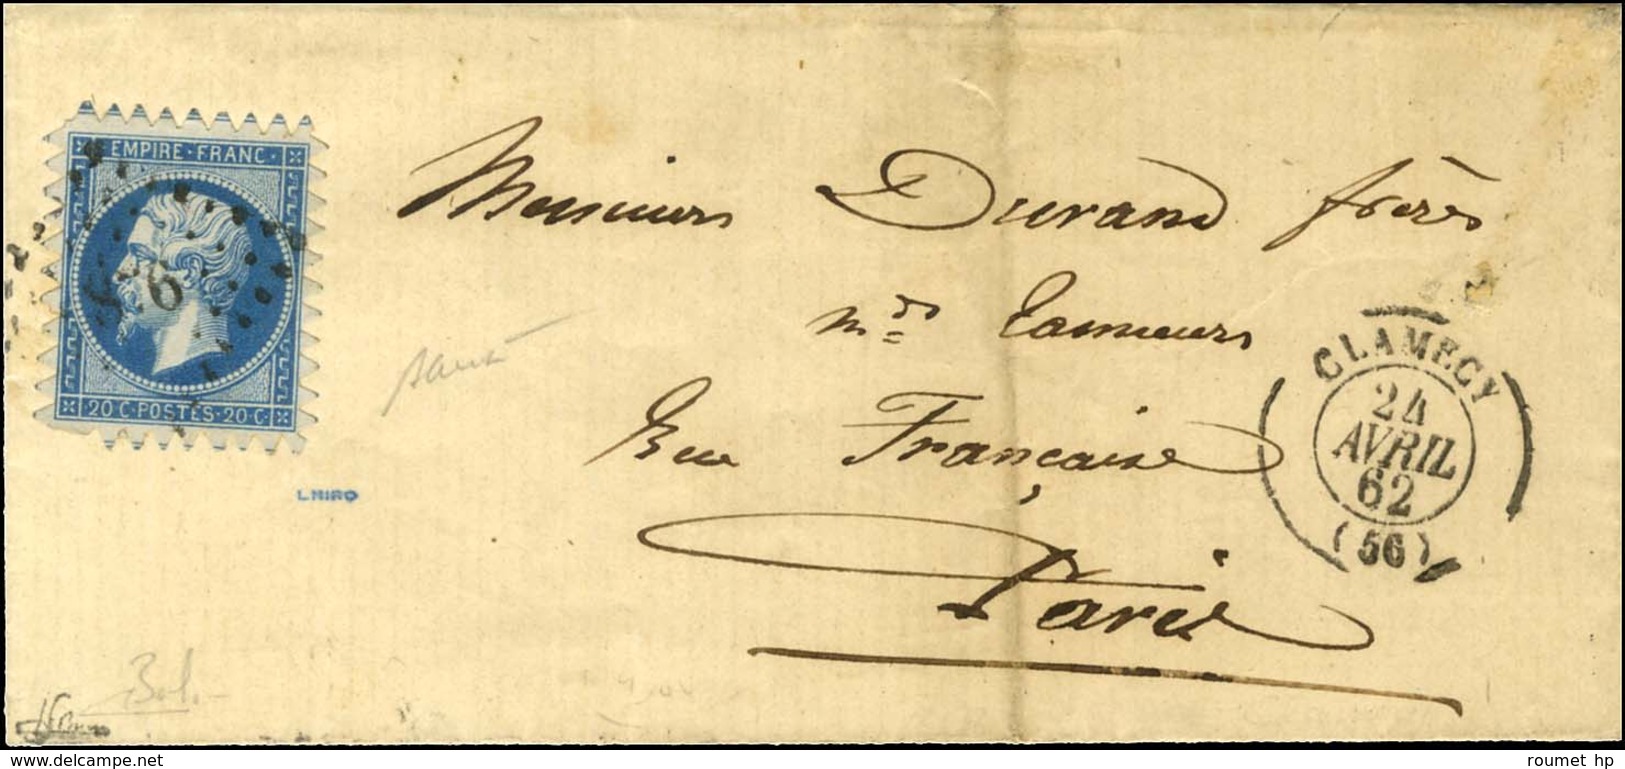 EMPIRE · FRANC ·
976
20 C · POSTES · 20 C ·
Messieurs Durand frères
mds Tanneurs
Rue Française
Paris
CLAMECY
24
AVRIL
62
(56)
L.MIRO
delcampe.net
roumet hp